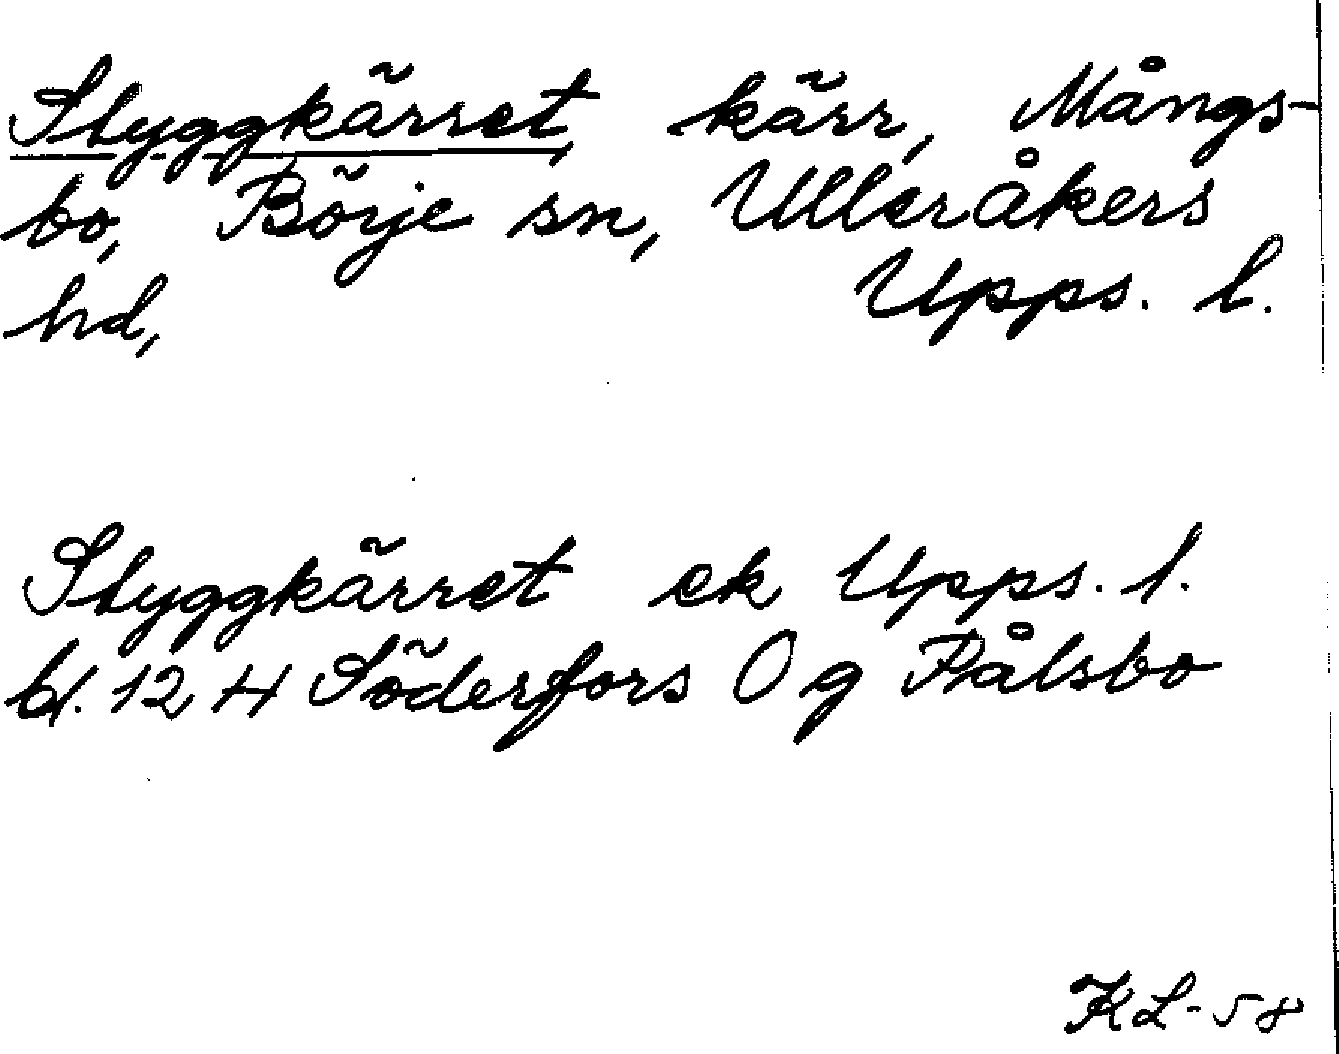 Styggkärret, kärr, Mångs-
bo, Börje sn, Ulleråkers
hd, Upps. l.
Styggkärret ek Upps. l.
bl. 12 H Söderfors Og Pålsbo
KL-58